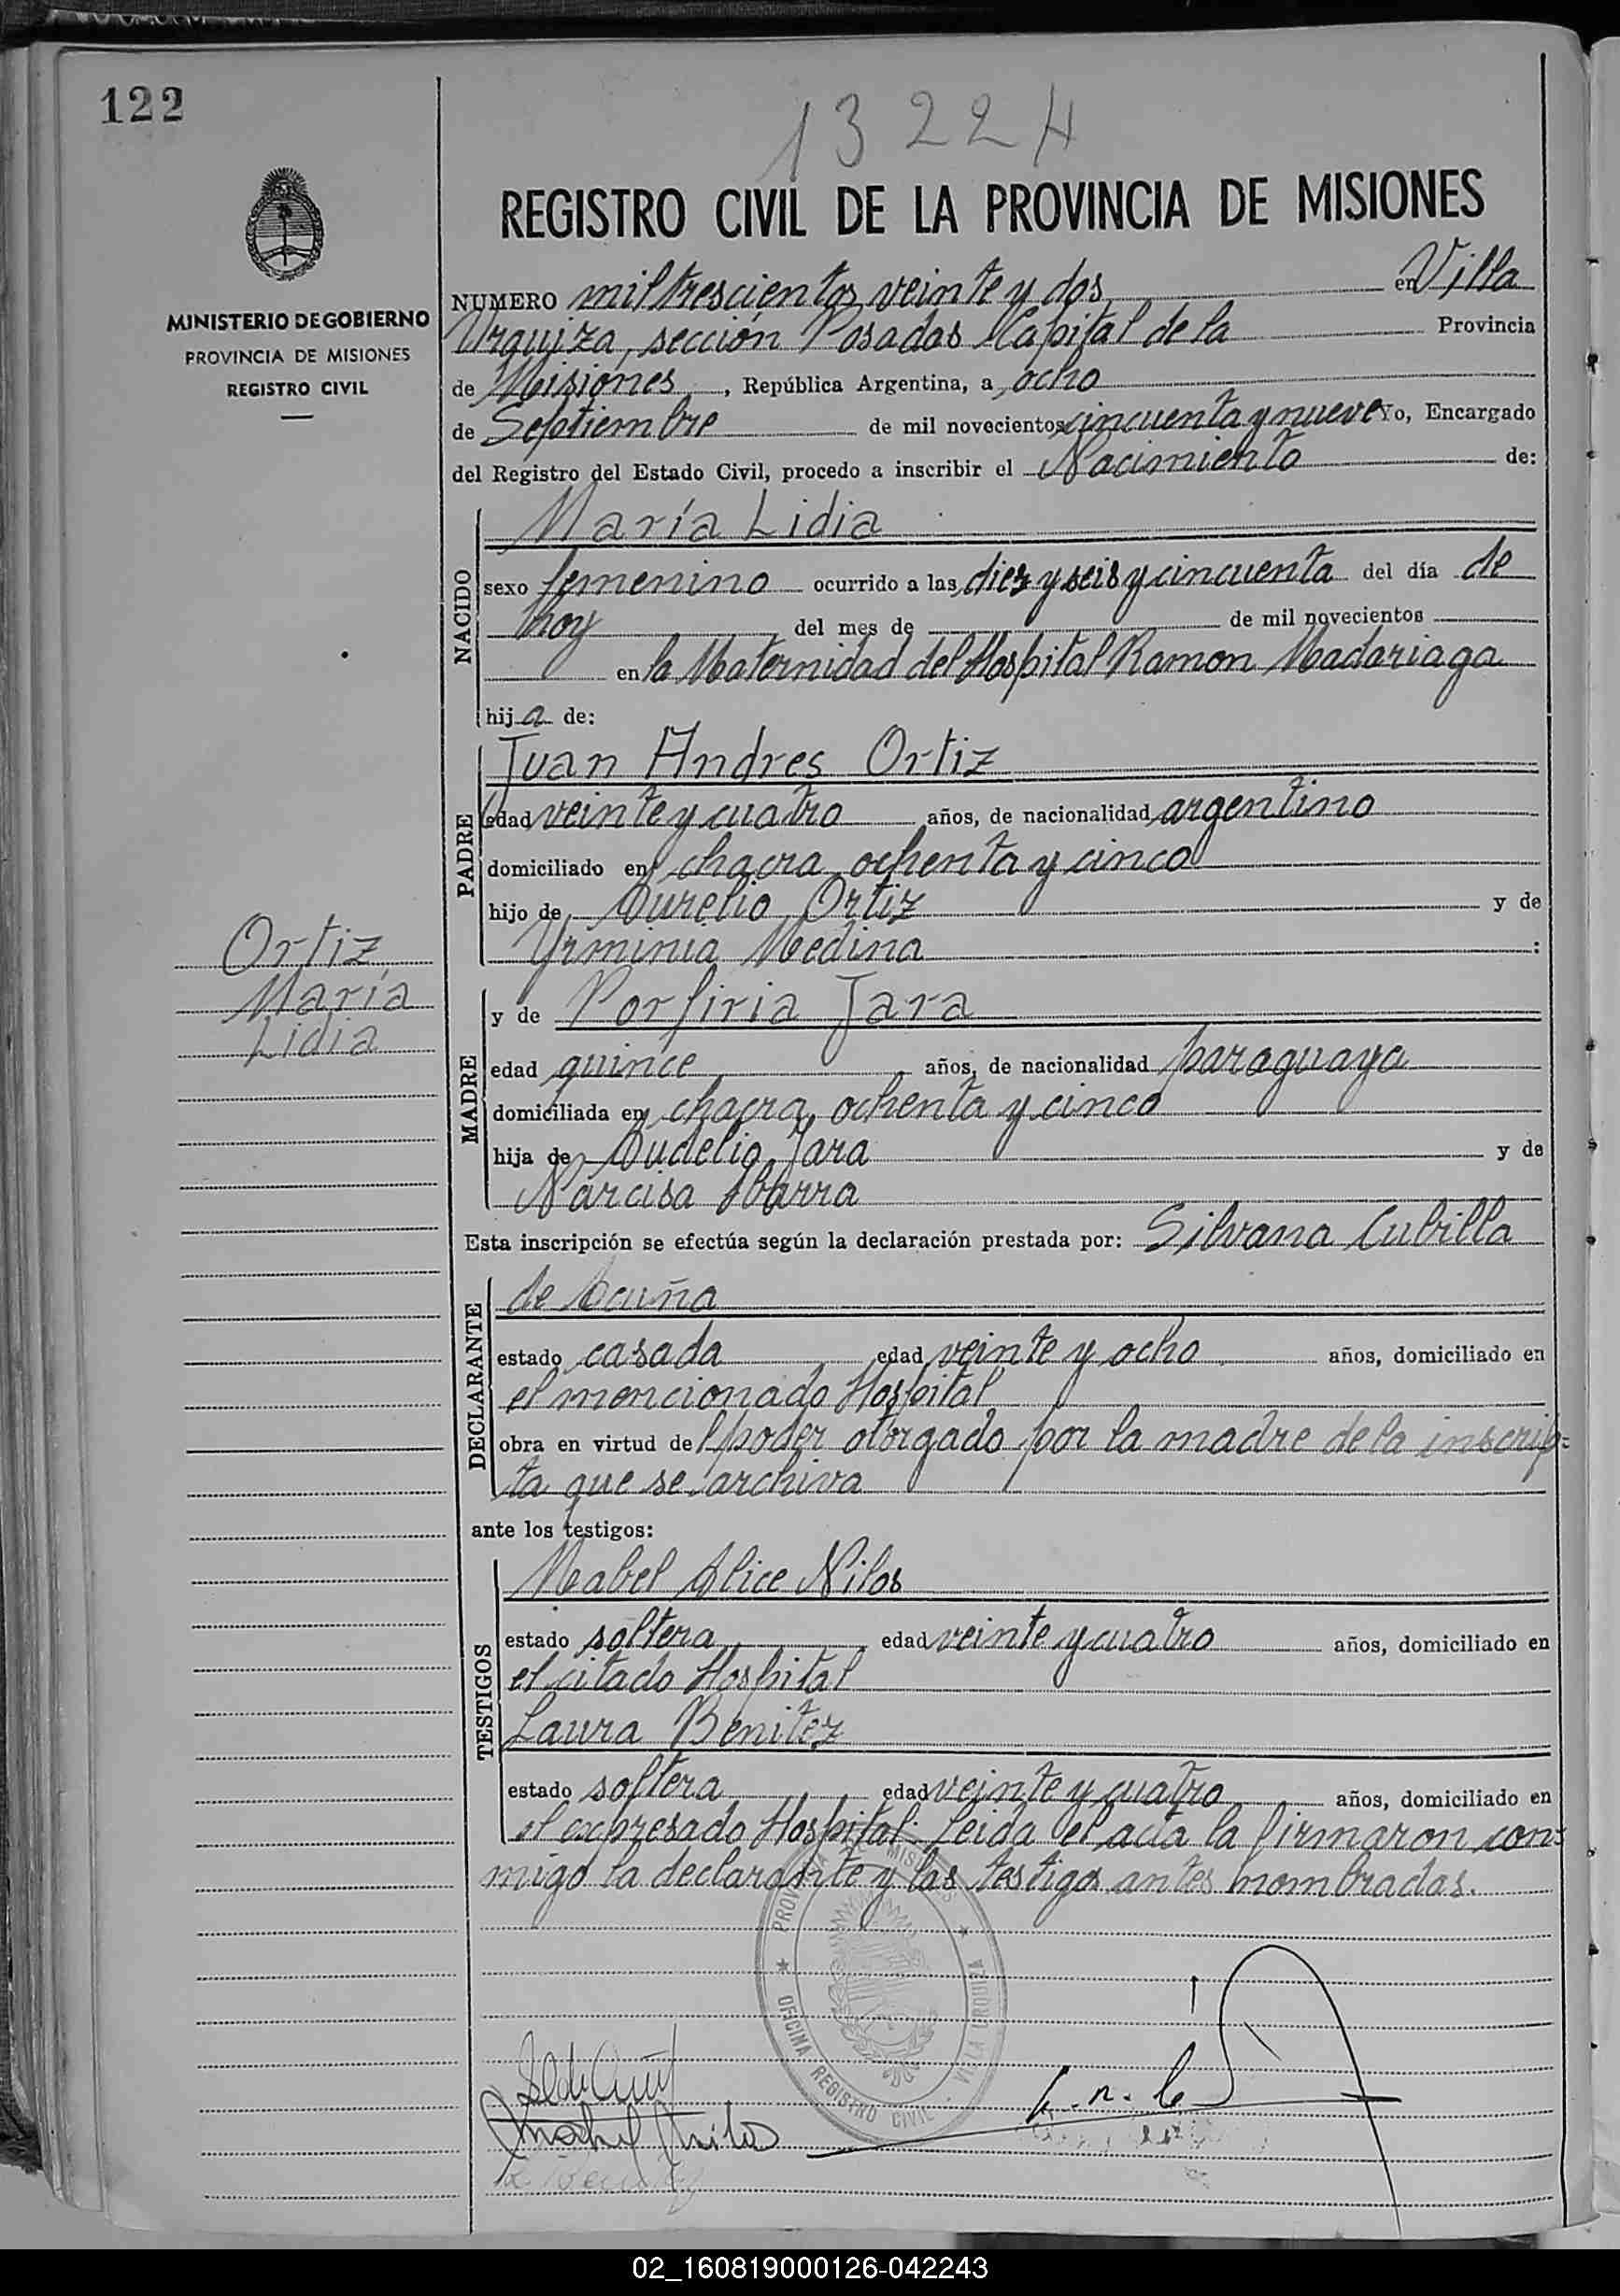 122
13224
REGISTRO CIVIL DE LA PROVINCIA DE MISIONES
MINISTERIO DE GOBIERNO
PROVINCIA DE MISIONES
REGISTRO CIVIL
NUMERO mil trescientos veinte y dos en Villa
Urquiza, sección Posadas Capital de la Provincia
de Misiones, República Argentina, a ocho
de Septiembre de mil novecientos cincuenta y nueve Yo, Encargado
del Registro del Estado Civil, procedo a inscribir el Nacimiento de:
NACIDO
María Lidia
sexo femenino ocurrido a las diez y seis y cincuenta del día de
hoy del mes de de mil novecientos
en la Maternidad del Hospital Ramon Madariaga
hija de:
PADRE
Juan Andres Ortiz
edad veinte y cuatro años, de nacionalidad argentino
domiciliado en chacra ochenta y cinco
hijo de Aurelio Ortiz y de
Yrminia Medina :
Ortiz,
María
Lidia
MADRE
y de Porfiria Jara
edad quince años, de nacionalidad paraguaya
domiciliada en chacra ochenta y cinco
hija de Audelio Jara y de
Narcisa Ibarra
Esta inscripción se efectúa según la declaración prestada por: Silvana Cubilla
DECLARANTE
de Acuña
estado casada edad veinte y ocho años, domiciliado en
el mencionado Hospital
obra en virtud del poder otorgado por la madre de la inscrip=
ta que se archiva
ante los testigos:
TESTIGOS
Mabel Alice Nilos
estado soltera edad veinte y cuatro años, domiciliado en
el citado Hospital
Laura Benitez
estado soltera edad veinte y cuatro años, domiciliado en
el expresado Hospital. Leida el acta la firmaron con=
migo la declarante y las testigos antes nombradas.
PROVINCIA DE MISIONES
OFICINA REGISTRO CIVIL - VILLA URQUIZA
02_160819000126-042243